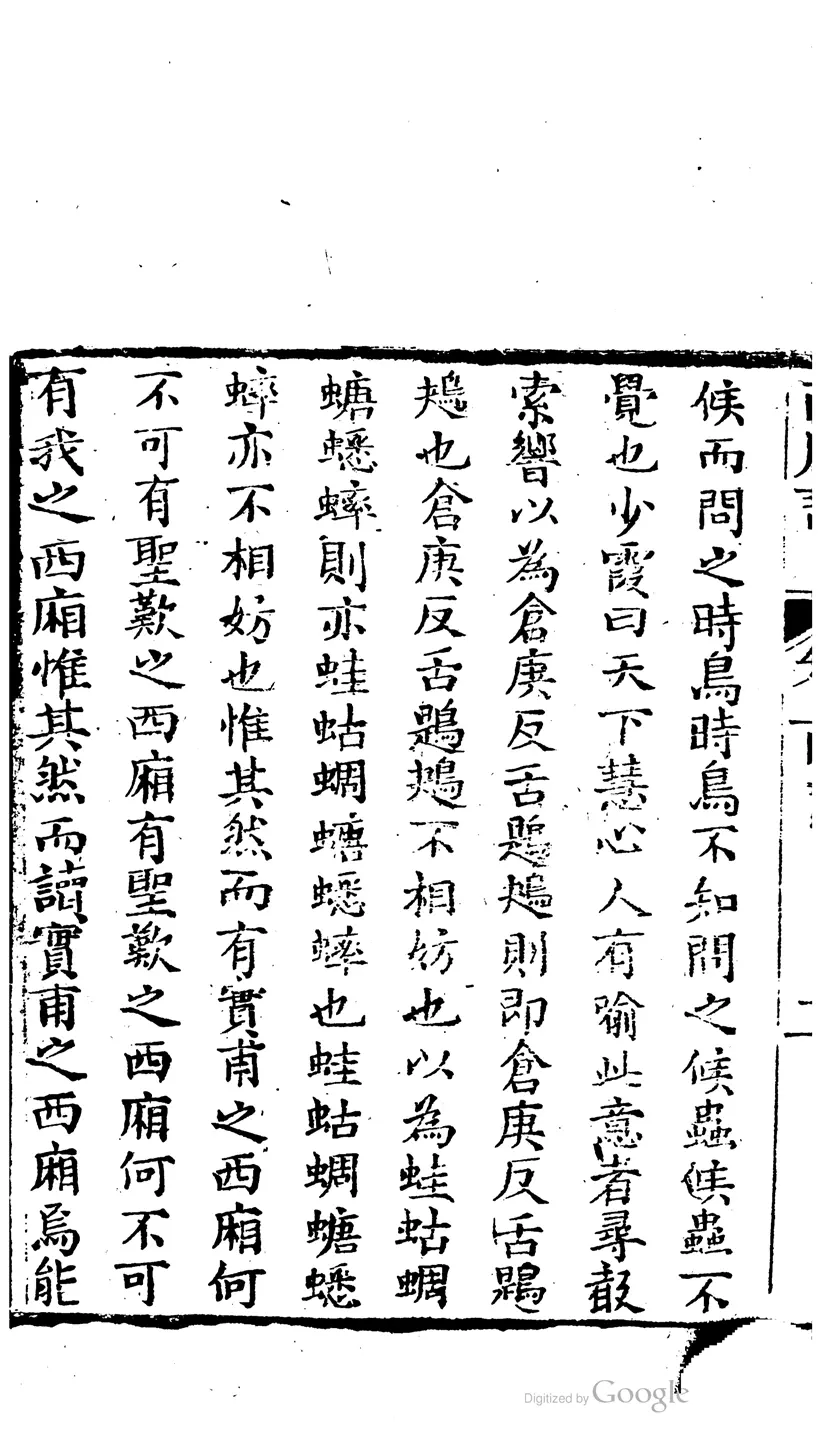 候而問之時鳥時鳥不知問之候蟲候蟲不
覺也少霞曰天下慧心人有喻此意者尋敲
索響以為倉庚反舌鶗鴂則即倉庚反舌鶗
鴂也倉庚反舌鶗鴂不相妨也以為蛙蛄蜩
螗蟋蟀則亦蛙蛄蜩螗蟋蟀也蛙蛄蜩螗蟋
蟀亦不相妨也惟其然而有實甫之西廂何
不可有聖歎之西廂有聖歎之西廂何不可
有我之西廂惟其然而讀實甫之西廂烏能
Digitized by Google